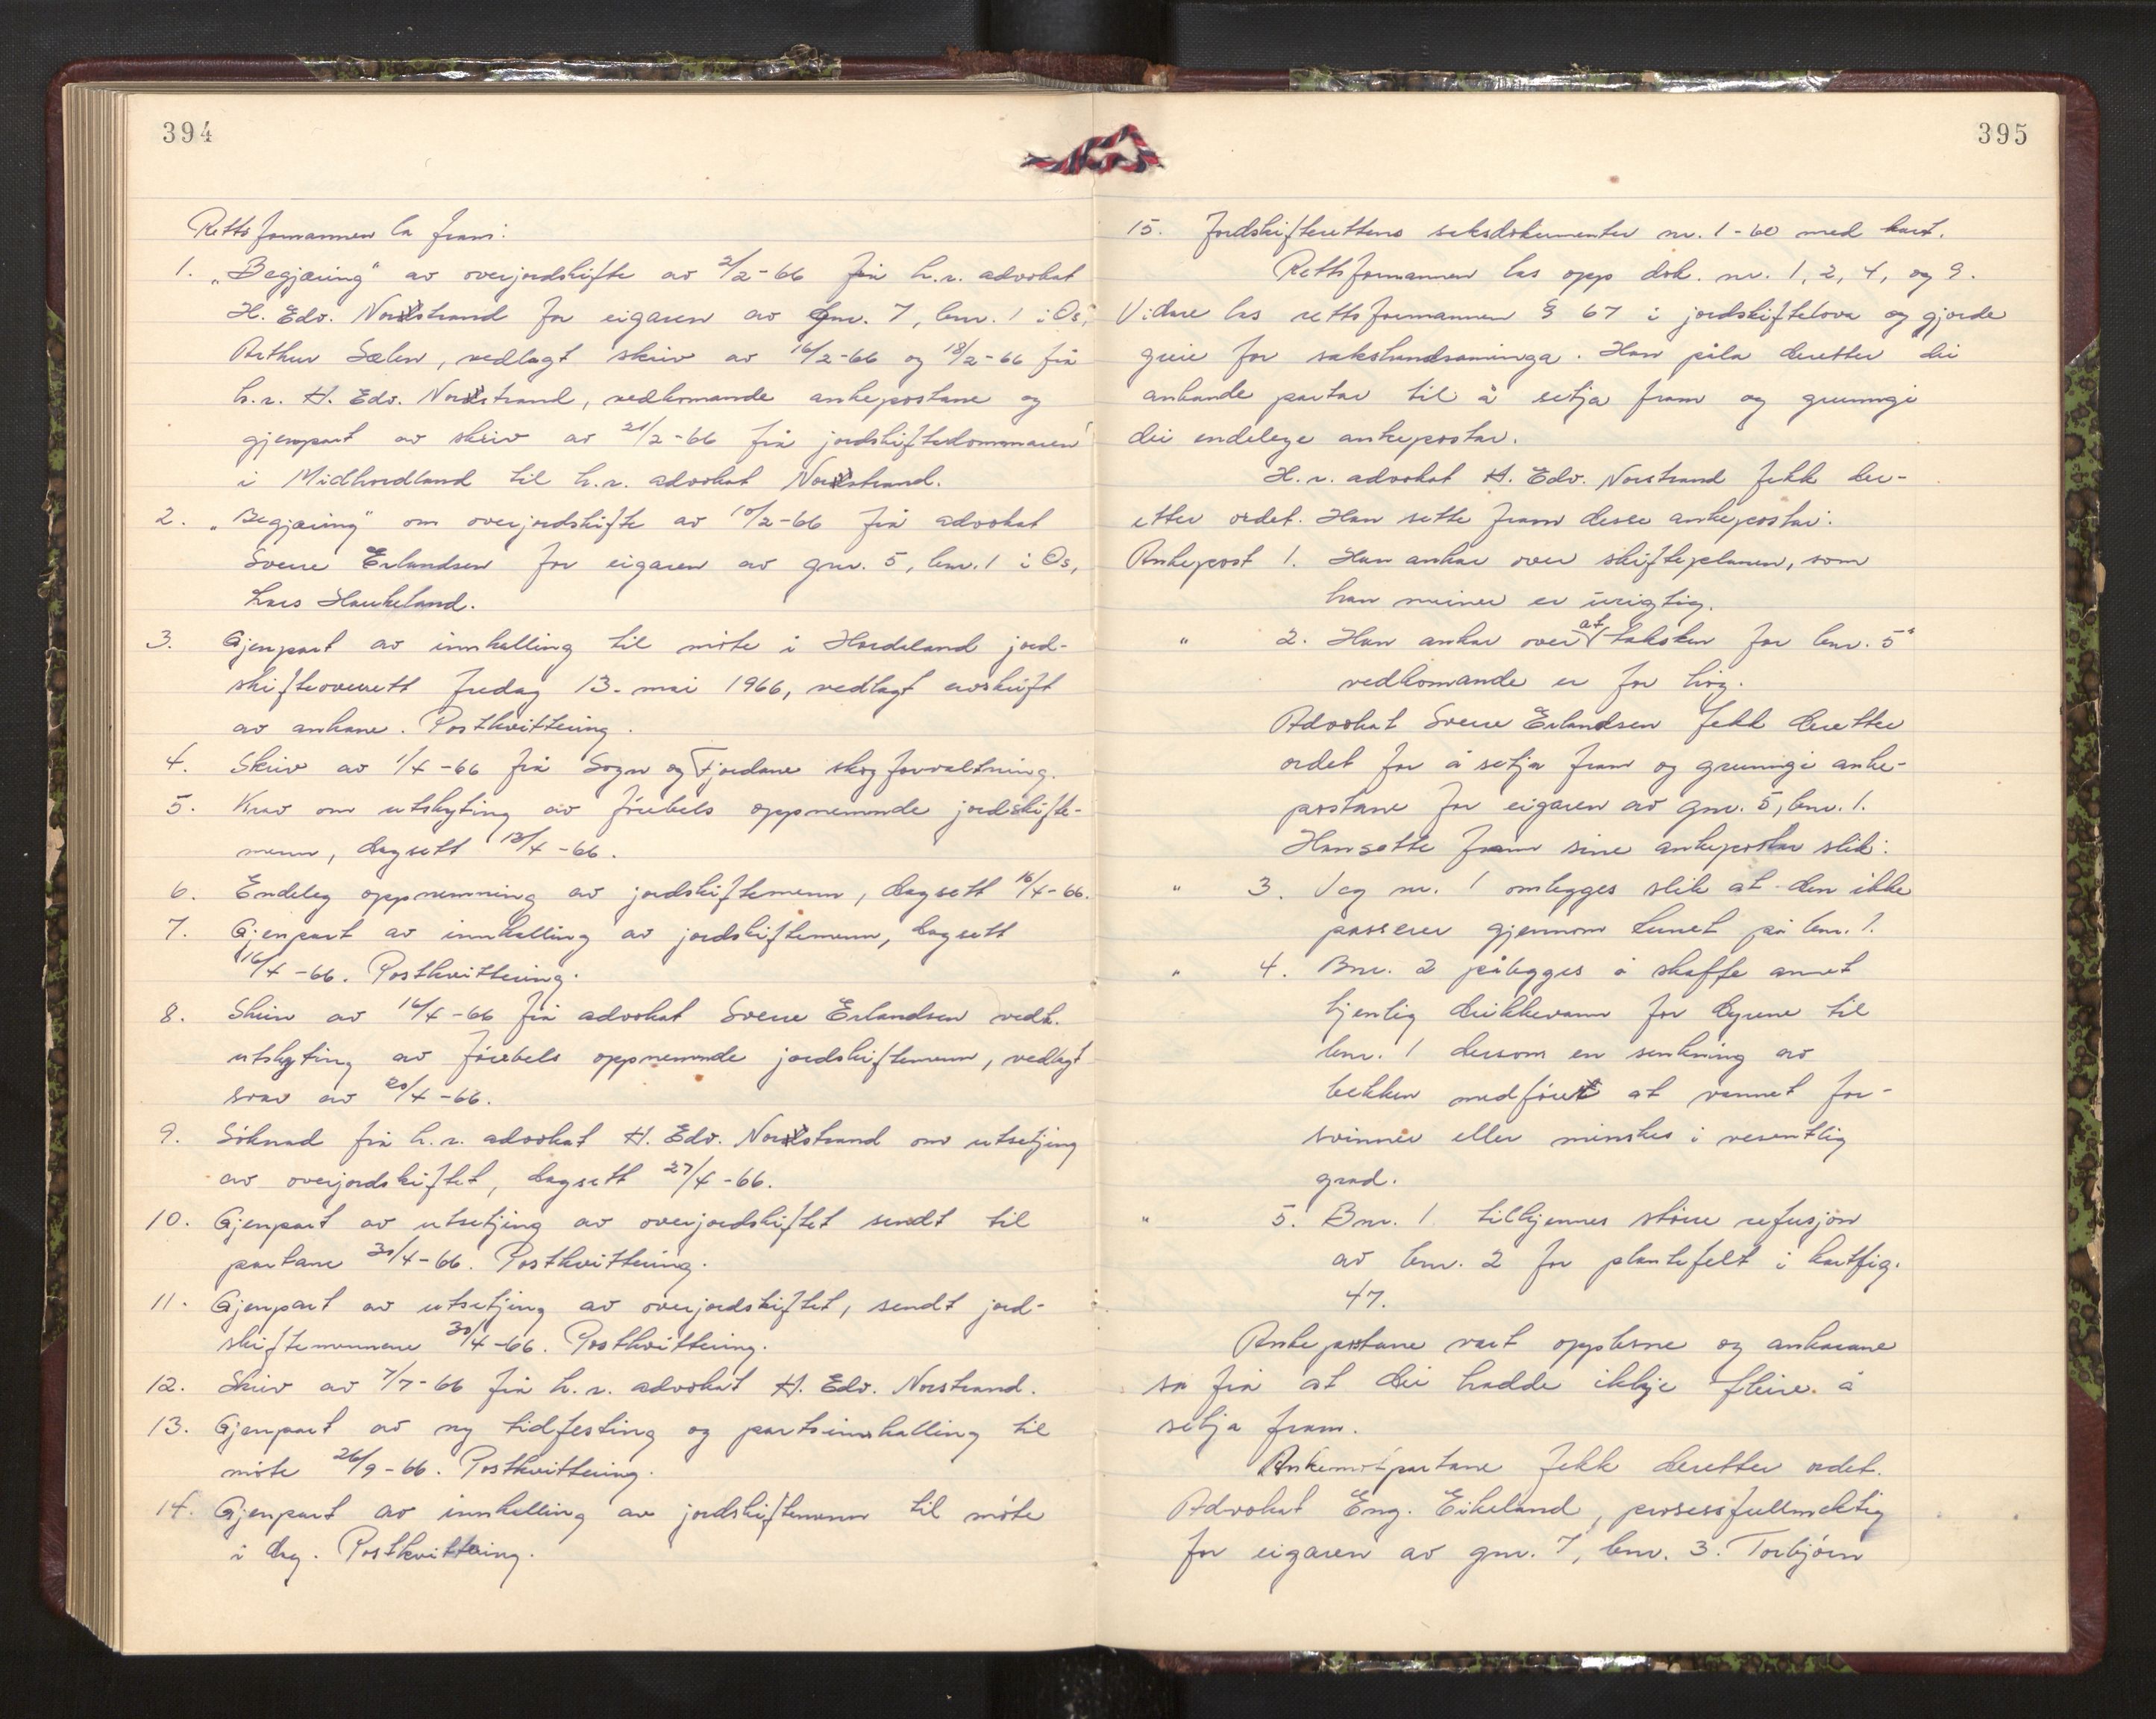 394
Rettsformannen la fram:
1. „Begjæring" av overjordskifte av 2/2-66 frå h.r. advokat
H. Edv. Norstrand for eigaren av gnr. 7, bnr. 1 i Os,
Arthur Sælen, vedlagt skriv av 16/2-66 og 18/2-66 frå
h.r. H. Edv. Norstrand, vedkomande ankepostane og
gjenpart av skriv av 21/2-66 frå jordskiftedommaren
i Midhordland til h.r. advokat Norstrand.
2. „Begjæring" om overjordskifte av 10/2-66 frå advokat
Sverre Erlandsen for eigaren av gnr. 5, bnr. 1 i Os,
Lars Haukeland.
3. Gjenpart av innkalling til møte i Hordaland jord-
skifteoverrett fredag 13. mai 1966, vedlagt avskrift
av ankane. Postkvittering.
4. Skriv av 1/4-66 frå Sogn og Fjordane skogforvaltning.
5. Krav om utskyting av førebels oppnemnde jordskifte-
menn, dagsett 13/4-66.
6. Endeleg oppnemning av jordskiftemenn, dagsett 16/4-66.
7. Gjenpart av innkalling av jordskiftemenn, dagsett
16/4-66. Postkvittering.
8. Skriv av 16/4-66 frå advokat Sverre Erlandsen vedk.
utskyting av førebels oppnemnde jordskiftemenn, vedlagt
svar av 20/4-66.
9. Søknad frå h.r. advokat H. Edv. Norstrand om utsetjing
av overjordskiftet, dagsett 27/4-66.
10. Gjenpart av utsetjing av overjordskiftet sendt til
partane 30/4-66. Postkvittering.
11. Gjenpart av utsetjing av overjordskiftet, sendt jord-
skiftemennene 30/4-66. Postkvittering.
12. Skriv av 7/7-66 frå h.r. advokat H. Edv. Norstrand.
13. Gjenpart av ny tidfesting og partsinnkalling til
møte 26/9-66. Postkvittering.
14. Gjenpart av innkalling av jordskiftemenn til møte
i dag. Postkvittering.
395
15. Jordskifterettens saksdokumenter nr. 1-60 med kart.
Rettsformannen las opp dok. nr. 1, 2, 4, og 9.
Vidare las rettsformannen § 67 i jordskiftelova og gjorde
greie for sakshandsaminga. Han påla deretter dei
ankande partar til å setja fram og grunngi
dei endelege ankepostar.
H.r. advokat H. Edv. Norstrand fekk der-
etter ordet. Han sette fram desse ankepostar:
Ankepost 1. Han ankar over skifteplanen, som
han meiner er urigtig.
" 2. Han ankar over at taksten for bnr. 5
vedkomande er for høg.
Advokat Sverre Erlandsen fekk deretter
ordet for å setja fram og grunngi anke-
postane for eigaren av gnr. 5, bnr. 1.
Han sette fram sine ankepostar slik:
" 3. Veg nr. 1 omlegges slik at den ikke
passerer gjennom tunet på bnr. 1.
" 4. Bnr. 2 pålegges å skaffe annet
tjenlig drikkevann for dyrene til
bnr. 1 dersom en senkning av
bekken medfører at vannet for-
svinner eller minskes i vesentlig
grad.
" 5. Bnr. 1 tilkjennes større refusjon
av bnr. 2 for plantefelt i kartfig.
47.
Ankepostane vart opplesne og ankarane
sa frå at dei hadde ikkje fleire å
setja fram.
Ankemotpartane fekk deretter ordet.
Advokat Eng. Eikeland, prosessfullmektig
for eigaren av gnr. 7, bnr. 3. Torbjørn